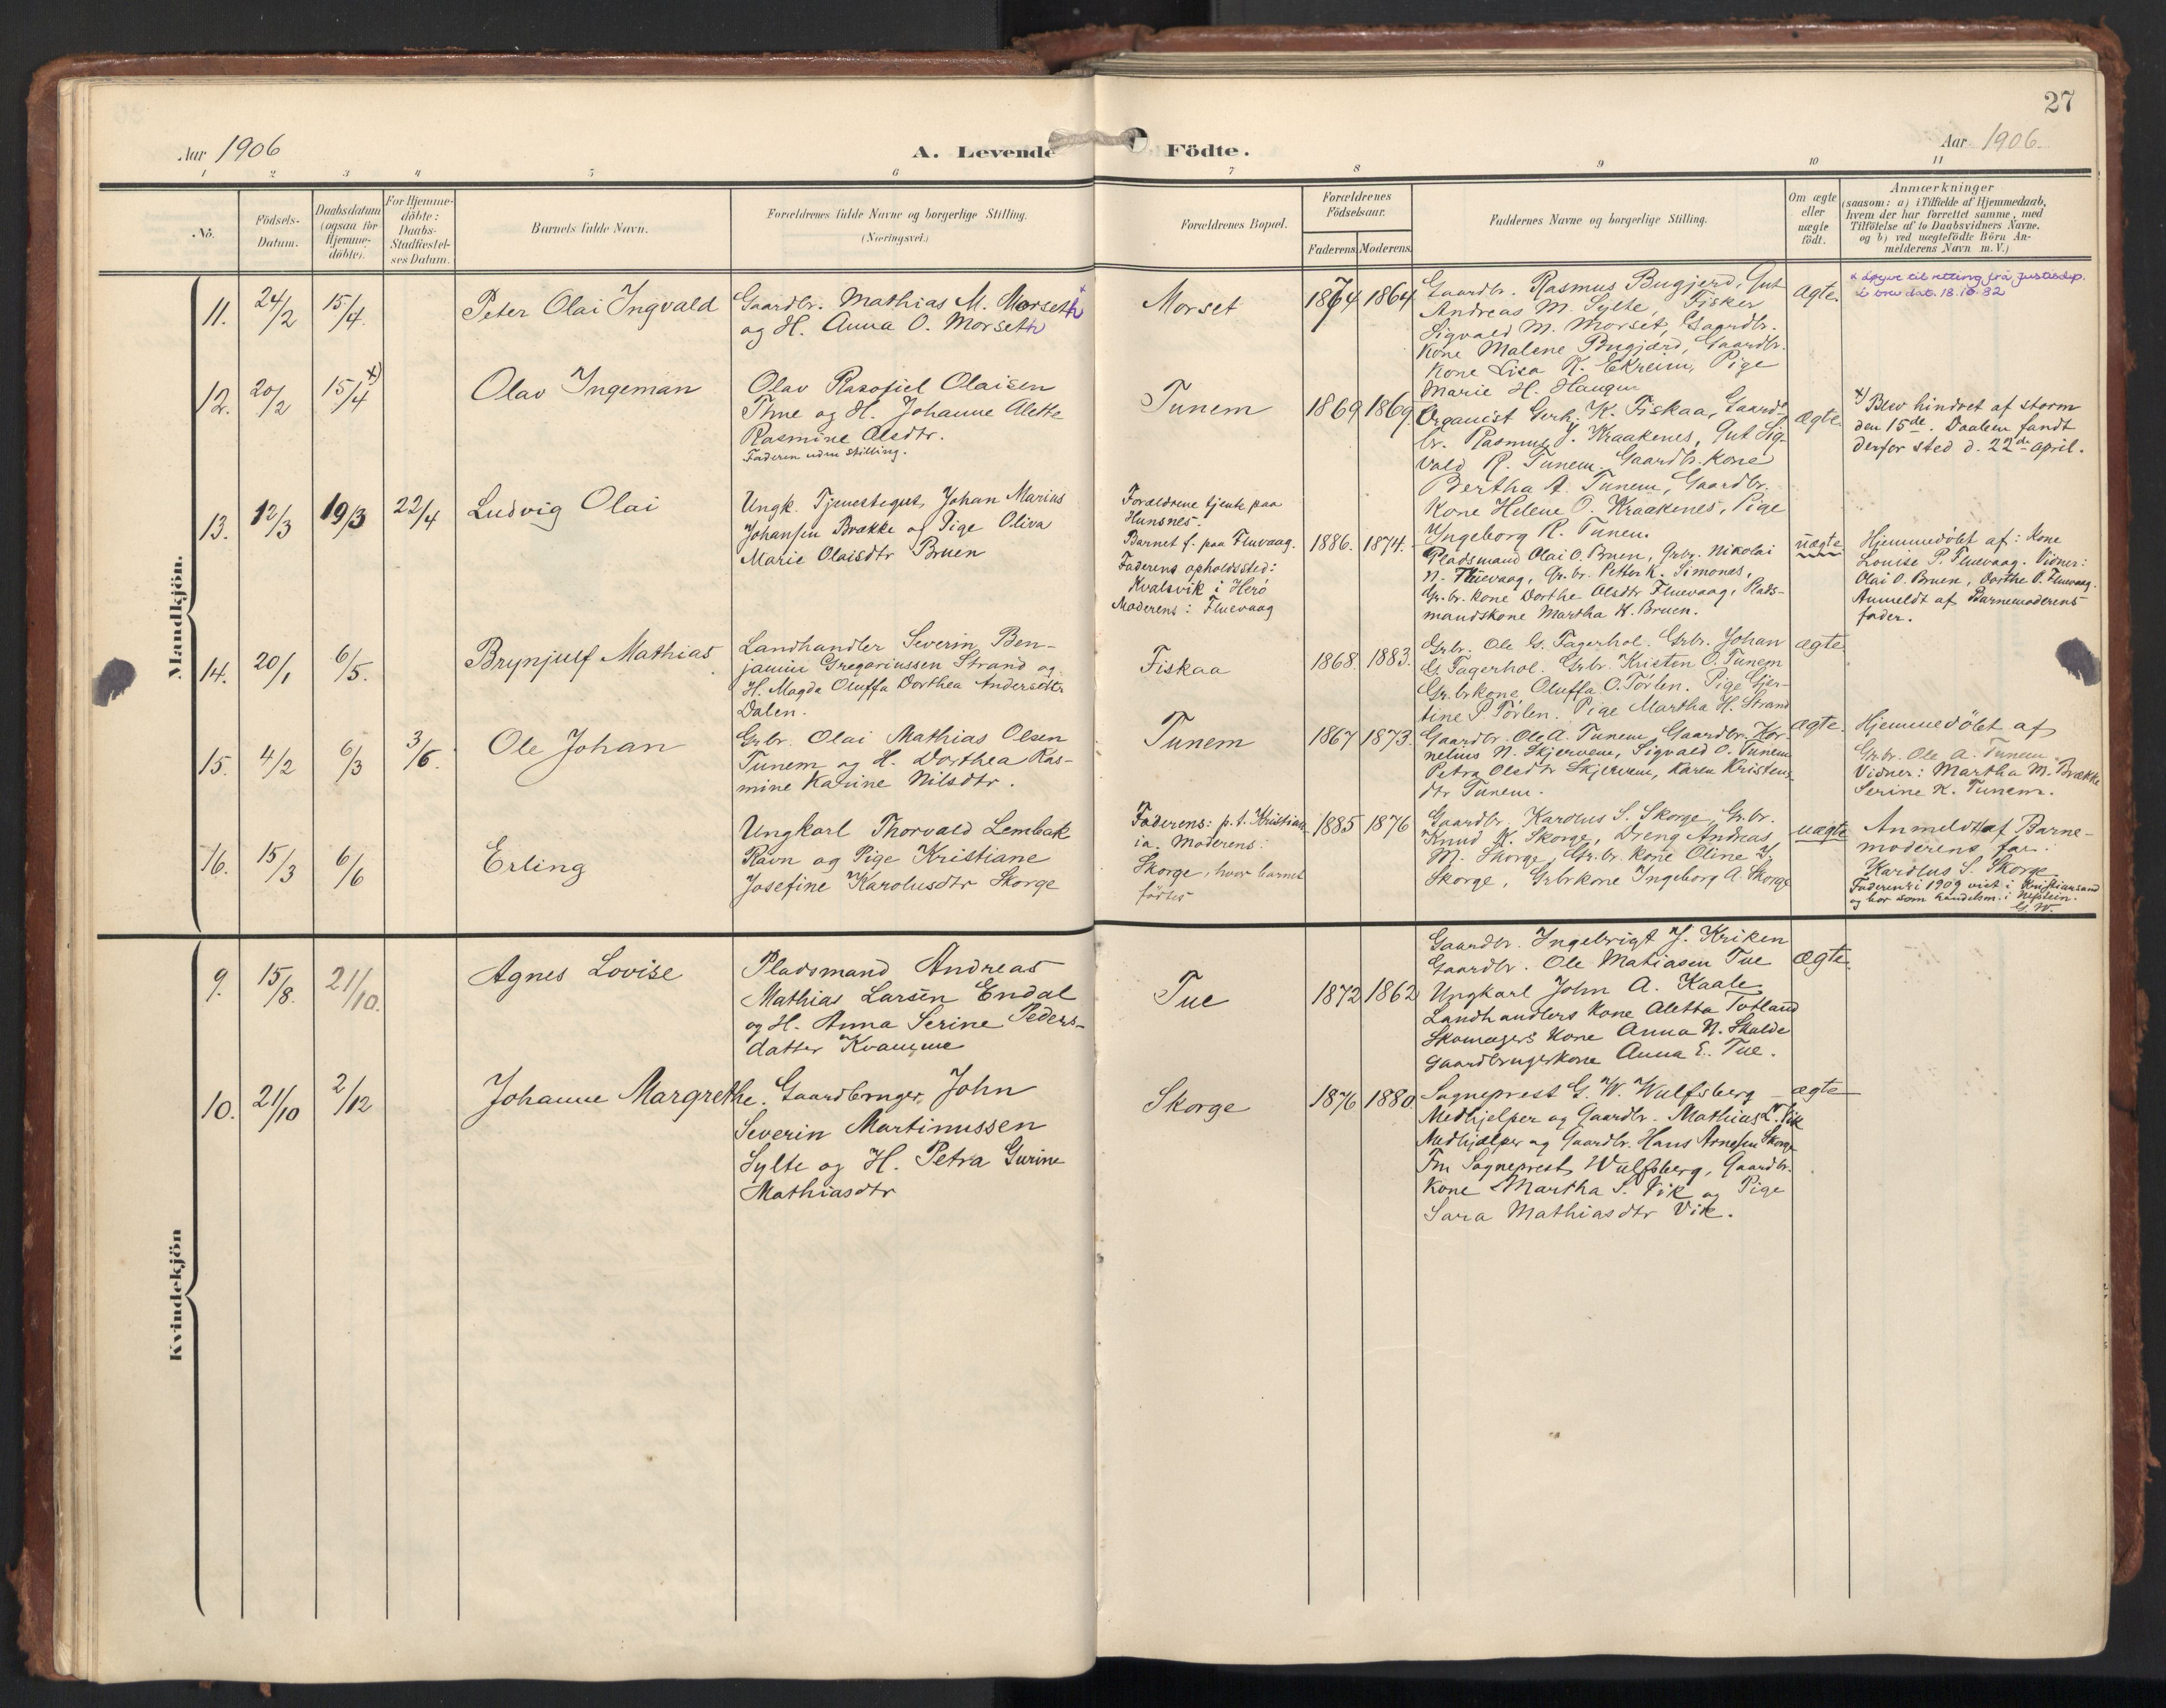 27
Aar 1906
A. Levende Födte.
Aar 1906.
1 2 3 4 5 6 7 8 9 10 11
No.
Födsels-
Datum.
Daabsdatum
(ogsaa for
Hjemme-
döbte).
For Hjemme-
döbte:
Daabs-
Stadfæstel-
ses Datum.
Barnets fulde Navn.
Forældrenes fulde Navne og borgerlige Stilling.
(Næringsvei.)
Forældrenes Bopæl.
Forældrenes
Födselsaar.
Faderens. Moderens.
Faddernes Navne og borgerlige Stilling.
Om ægte
eller
uægte
födt.
Anmærkninger
(saasom: a) i Tilfælde af Hjemmedaab,
hvem der har forrettet samme, med
Tilföielse af to Daabsvidners Navne.
og b) ved uægtefödte Börn An-
melderens Navn m. V.)
Mandkjön.
11.
24/2
15/4.
Peter Olai Ingvald
Gaardbr. Mathias M. Morseth x
og H. Anna O. Morseth
Morset
1874 1864
Gaardbr. Rasmus Bugjerd, Gut
Andreas M. Sylte, Fisker
Sigvald M. Morset, Gaardbr.
kone Malene Bugjærd, Gaardbr.
kone Lisa K. Ekreim, Pige
Marie H. Haugen
Ægte.
x Løyve til retting frå Justisdep.
i brev dat. 18.10.82
12.
20/2
15/4 x)
Olav Ingeman
Olav Rasofiel Olaisen
Time og H. Johanne Alette
Rasmine Olsdtr.
Faderen uden stilling.
Tunem
1869 1869.
Organist Gerh. K. Fiskaa, Gaard-
br. Rasmus J. Kraakenes, Gut Sig-
vald R. Tunem, Gaardbr. kone
Bertha A. Tunem, Gaardbr.
kone Helene O. Kraakenes, Pige
Ingeborg R. Tunem.
Ægte.
x) Blev hindret af storm
den 15de. Daaben fandt
derfor sted d. 22de april.
13.
12/3
19/3
22/4
Ludvig Olai
Ungk. Tjenestegut, Johan Marius
Johansen Brække og Pige Oliva
Marie Olaisdtr Bruen
Forældrene tjente paa
Hunsnes.
Barnet f. paa Fluevaag.
Faderens opholdssted:
Kvalsvik i Herö
Moderens: Fluevaag
1886. 1874.
Pladsmand Olai O. Bruen, Grbr. Nikolai
N. Fluevaag, Gr.br. Petter K. Simones,
Gr.br. kone Dorthe Olsdtr Fluevaag, Plads-
mandskone Martha H. Bruen.
uægte
Hjemmedöbt af: Kone
Louise P. Fluevaag. Vidner:
Olai O. Bruen, Dorthe O. Fluevaag.
Anmeldt af Barnemoderens
fader.
14.
20/1
6/5.
Brynjulf Mathias
Landhandler Severin Ben-
jamin Gregoriussen Strand og
H. Magda Oluffa Dorthea Andersdtr
Dalen.
Fiskaa
1868. 1883.
Grbr. Ole G. Fagerhol. Grbr. Johan
G. Fagerhol. Grbr. Kristen O. Tunem
Gr.brkone Oluffa O. Törlen. Pige Gjer-
tine P. Törlen. Pige Martha H. Strand
ægte
15.
4/2
6/3
3/6.
Ole Johan
Grbr. Olai Mathias Olsen
Tunem og H. Dorthea Ras-
mine Karine Nilsdtr.
Tunem
1867 1873.
Gaardbr. Ole A. Tunem, Gaardbr. Kor-
nelius N. Skjervem, Sigvald O. Tunem
Petra Olsdtr Skjervem, Karen Kristens-
dtr Tunem.
ægte.
Hjemmedöbt af
Gr.br. Ole A. Tunem.
Vidner: Martha M. Brække
Serine K. Tunem.
16.
15/3
6/6
Erling
Ungkarl Thorvald Lembak
Ravn og Pige Kristiane
Josefine Karolusdtr Skorge
Faderens: p.t. Kristian-
ia. Moderens:
Skorge, hvor barnet
födtes
1885 1876
Gaardbr. Karolus S. Skorge, Gr.br.
Knud K. Skorge, Dreng Andreas
M. Skorge, Gr.br. kone Oline K.
Skorge, Grbrkone Ingeborg A. Skorge
uægte
Anmeldt af Barne-
moderens far:
Karolus S. Skorge
Faderen i 1909 viet i Kristiansand
og bor som handelsm. i
G.W.
Kvindekjön
9.
15/8.
21/10.
Agnes Lovise
Pladsmand Andreas
Mathias Larsen Endal
og H. Anna Serine Peders-
datter Kvamme
Tue
1872 1862
Gaardbr. Ingebrigt J. Kriken
Gaardbr. Ole Matiasen Tue
Ungkarl John A. Kaale
Landhandlers kone Aletta Totland
Skomagers kone Anna N. Skulde
Gaardbrugerkone Anna E. Tue.
Ægte.
10.
21/10
2/12
Johanne Margrethe.
Gaardbruger John
Severin Martinussen
Sylte og H. Petra Gurine
Mathiasdtr
Skorge
1876 1880.
Sogneprest G. W. Wulfsberg
Medhjelper og Gaardbr. Mathias L. Vik
Medhjælper og Gaardbr. Hans Arnesen Skorge
Fru Sogneprest Wulfsberg, Gaardbr.
kone Martha S. Vik og Pige
Sara Mathiasdtr Vik.
ægte